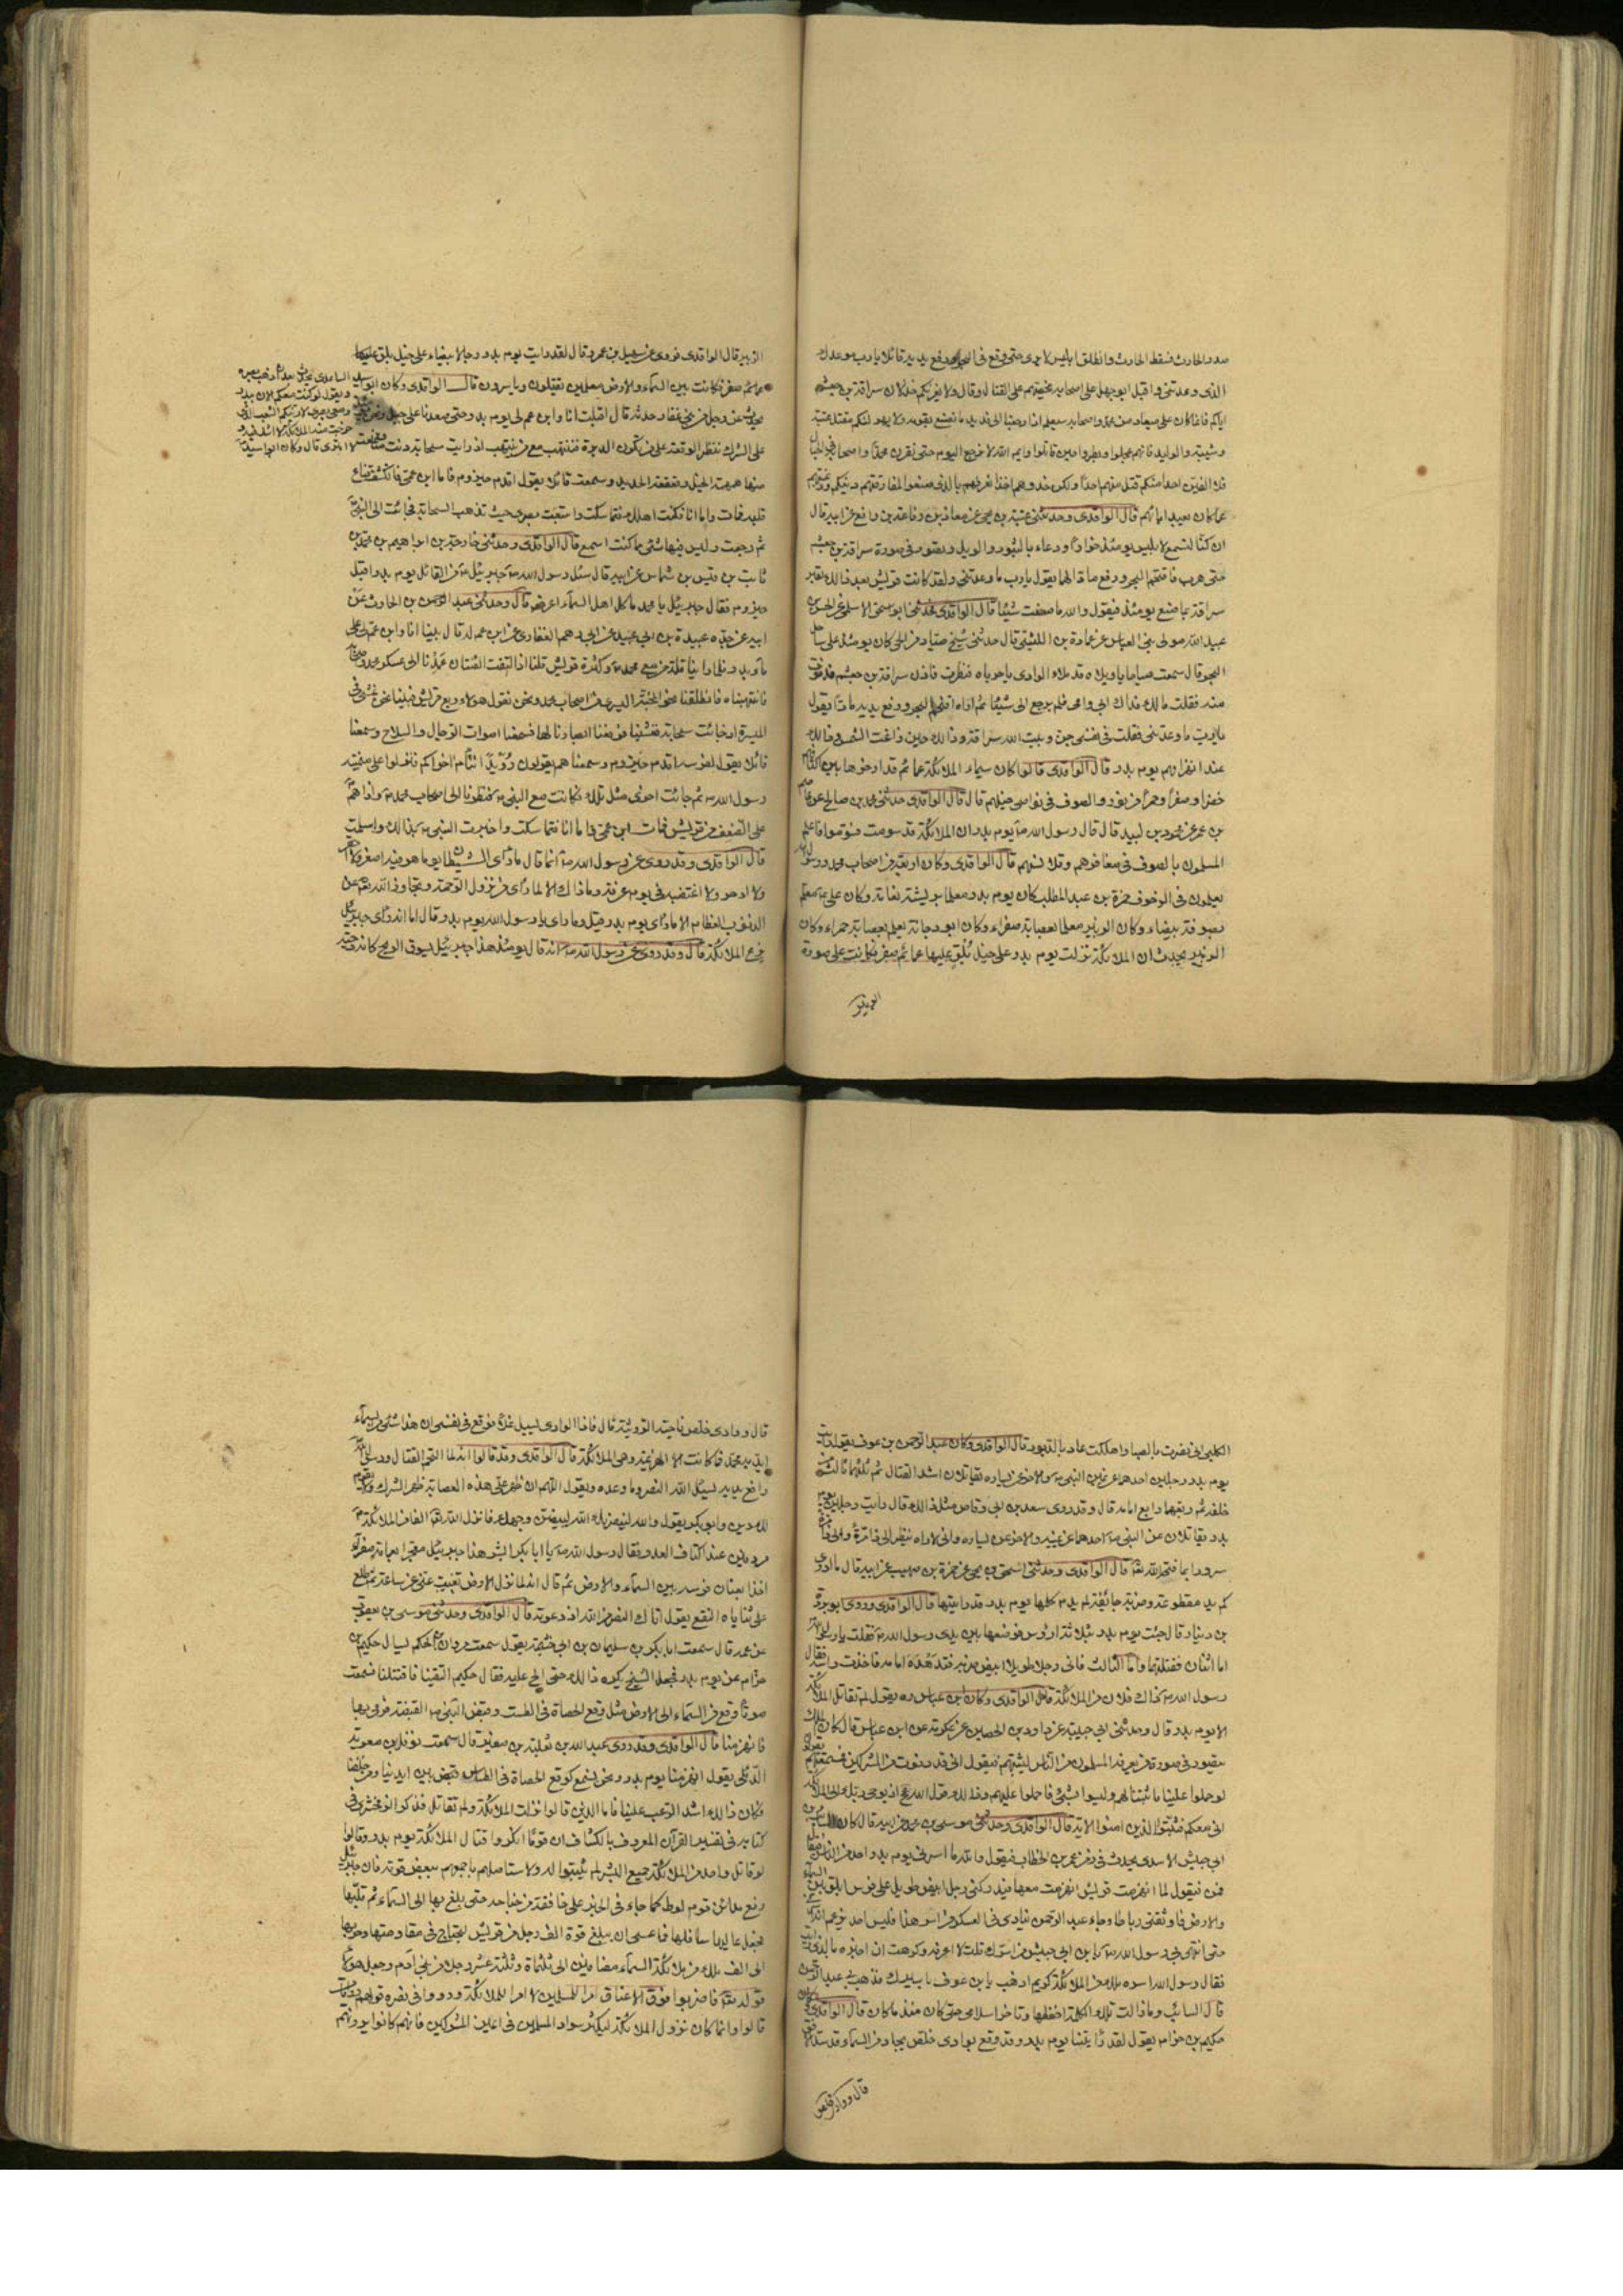 صدر الحارث فسقط الحارث وانطلق ابليس لا يرى حتى وقع فى البحر ورفع يديه قائلا يا رب موعدك
الذى وعدتنى واقبل ابو جهل على اصحابه يحضهم على القتال وقال لا يغرنكم خذلان سراقة بن جعشم
اياكم فانما كان على ميعاد من محمد واصحابه سيعلم اذا رجعنا الى قديد ما نصنع بقومه ولا يهولنكم مقتل عتبة
وشيبة والوليد فانهم عجلوا وبطروا حين قاتلوا وايم الله لا نرجع اليوم حتى نقرن محمدا واصحابه فى الحبال
فلا الفين احدا منكم قتل منهم احدا ولكن خذوهم اخذا نعرفهم بالذى صنعوا لمفارقتهم دينكم ورغبتهم
عما كان يعبد اباؤهم قال الواقدى وحدثنى عتبة بن يحيى عن معاذ بن رفاعة بن رافع عن ابيه قال
ان كنا لنسمع لابليس يومئذ خوارا ودعاء بالثبور والويل وتصور فى صورة سراقة بن جعشم
حتى هرب فاقتحم البحر ورفع يديه مادا لهما يقول يا رب ما وعدتنى ولقد كانت قريش بعد ذلك تعير
سراقة بما صنع يومئذ فيقول والله ما صنعت شيئا قال الواقدى فحدثنى ابو اسحق الاسلمى عن الحسن بن
عبيد الله مولى بنى العباس عن عمارة بن الليثى قال حدثنى شيخ صياد من الحى كان يومئذ على ساحل
البحر قال سمعت صياحا يا ويلاه قد ملاء الوادى يا حرباه فنظرت فاذن سراقة بن جعشم فدنوت
منه فقلت مالك فداك ابى وامى فلم يرجع الى شيئا ثم اراه اقتحم البحر ورفع يديه مادا يقول
يا رب ما وعدتنى فقلت فى نفسى جن وبيت الله سراقة وذلك حين زاغت الشمس وذلك
عند انهزامهم يوم بدر قال الواقدى قالوا كان سيماء الملائكة عمائم قد ارخوها بين اكتافهم
خضرا وصفرا وحمرا من نور والصوف فى نواصى خيلهم قال قال الواقدى حدثنى محمد بن صالح عن عاصم
بن عمر عن محمود بن لبيد قال قال رسول الله ص يوم بدر ان الملائكة قد سومت فسوموا فاعلم
المسلمون بالصوف فى مغافرهم وقلانسهم قال الواقدى وكان اربعة من اصحاب محمد رسول الله
يعلمون فى الزحوف حمزة بن عبد المطلب كان يوم بدر معلما بريشة نعامة وكان على ع معلما
بصوفة بيضاء وكان الزبير معلما بعصابة صفراء وكان ابو دجانة يعلم بعصابة حمراء وكان
الزبير يحدث ان الملائكة نزلت يوم بدر على خيل بلق عليها عمائم صفر فكانت على صورة
الزبير قال الواقدى فروى عن سهيل بن عمرو قال لقد رايت يوم بدر رجالا بيضاء على خيل بلق عليها
عمائم صفر فكانت بين السماء والارض معلمين يقتلون وياسرون قال الواقدى وكان ابو اسيد
الساعدى يحدث بعد ان ذهب بصره
ويقول لو كنت معكم الان ببدر
ومعى بصرى لاريتكم الشعب الذى
خرجت منه الملائكة لا اشك فيه ولا
امترى قال وكان ابو اسيد
يحدث عن رجل من بنى غفار حدثه قال اقبلت انا وابن عم لى يوم بدر حتى صعدنا على جبل ونحن
على الشرك ننظر الوقعة على من تكون الدبرة فننتهب مع من ينتهب اذ رايت سحابة دنت منا فسمعت
منها همهمة الخيل وقعقعة الحديد وسمعت قائلا يقول اقدم حيزوم فاما ابن عمى فانكشف قناع
قلبه فمات واما انا فكدت اهلك فتماسكت واتبعت بصرى حيث تذهب السحابة فجائت الى النبى
ثم رجعت وليس فيها شئ مما كنت اسمع قال الواقدى وحدثنى خارجة بن ابراهيم بن محمد بن
ثابت بن قيس بن شماس عن ابيه قال سئل رسول الله ص جبرئيل ع من القائل يوم بدر اقبل
حيزوم فقال جبرئيل يا محمد ما كل اهل السماء اعرف قال وحدثنى عبد الرحمن بن الحارث عن
ابيه عن جده عبيدة بن ابى عبيد عن ابى رهم الغفارى عن ابن عم له قال بينا انا وابن عم لى على
ماء بدر فلما راينا قلة من مع محمد وكثرة قريش قلنا اذا التقت الفئتان عمدنا الى عسكر محمد واصحابه
فانتهبناه فانطلقنا نحو المجنبة اليسرى من اصحاب محمد ونحن نقول هؤلاء ربع قريش فبينا نحن نمشى فى
الميسرة اذ جائت سحابة فغشيتنا فرفعنا ابصارنا لها فسمعنا اصوات الرجال والسلاح وسمعنا
قائلا يقول لفرسه اقدم حيزوم وسمعناهم يقولون رويدا تتام اخراكم فنزلوا على ميمنة
رسول الله ص ثم جائت اخرى مثل تلك فكانت مع النبى ص فنظرنا الى اصحاب محمد ص واذا هم
على الضعف من قريش فمات ابن عمى واما انا فتماسكت واخبرت النبى ص بذلك واسلمت
قال الواقدى وقد روى عن رسول الله ص انه قال ما رأى الشيطان يوما هو فيه اصغر ولا احقر
ولا ادحر ولا اغضب فى يوم عرفة وما ذاك الا لما رأى من نزول الرحمة وتجاوز الله تعالى عن
الذنوب العظام الا ما رأى يوم بدر قيل وما رأى يا رسول الله يوم بدر قال اما انه رأى جبرئيل
يزع الملائكة قال وقد روى عن رسول الله ص انه قال يومئذ هذا جبرئيل يسوق الريح كانه دحية
الكلبى انى نصرت بالصبا واهلكت عاد بالدبور قال الواقدى وكان عبد الرحمن بن عوف يقول رايت
يوم بدر رجلين احدهما عن يمين النبى ص والاخر عن يساره يقاتلان اشد القتال ثم ثلثهما ثالث من
خلفه ثم ربعهما رابع امامه قال وقد روى سعد بن ابى وقاص مثل ذلك قال رايت رجلين يوم
بدر يقاتلان عن النبى ص احدهما عن يمينه والاخر عن يساره وانى لاراه ينظر الى ذا مرة والى ذا مرة
سرورا بما فتحه الله تعالى قال الواقدى وحدثنى اسحق بن يحيى عن حمزة بن صهيب عن ابيه قال ما ادرى
كم يد مقطوعة وضربة جائفة لم يدم كلمها يوم بدر قد رايتها قال الواقدى وروى ابو بردة
بن دينار قال جئت يوم بدر بثلاثة ارؤس فوضعتها بين يدى رسول الله ص فقلت يا رسول الله
اما اثنان فقتلتهما واما الثالث فانى رايت رجلا طويلا ابيض ضربه فتدهده امامه فاخذت راسه فقال
رسول الله ص ذاك فلان من الملائكة قال الواقدى وكان ابن عباس ره يقول لم تقاتل الملائكة
الا يوم بدر قال وحدثنى ابى حبيبة عن داود بن الحصين عن عكرمة عن ابن عباس قال كان الملك
يتصور فى صورة من يعرفه المسلمون من الناس ليثبتهم فيقول انى قد دنوت من المشركين فسمعتهم يقولون
لو حملوا علينا ما ثبتنا لهم وليسوا بشئ فاحملوا عليهم وذلك قول الله تع اذ يوحى ربك الى الملائكة
انى معكم فثبتوا الذين امنوا الاية قال الواقدى وحدثنى موسى بن محمد عن ابيه قال كان السائب بن
ابى حبيش الاسدى يحدث فى زمن عمر بن الخطاب فيقول والله ما اسرنى يوم بدر احد من الناس فيقال
فمن فيقول لما انهزمت قريش انهزمت معها فيدركنى رجل ابيض طويل على فرس ابلق بين السماء
والارض فاوثقنى رباطا وجاء عبد الرحمن فنادى فى العسكر من اسر هذا فليس احد يزعم انه اسرنى
حتى انتهى بى رسول الله ص يا ابن ابى حبيش من اسرك قلت لا اعرفه وكرهت ان اخبره بالذى رايت
فقال رسول الله اسره ملك من الملائكة كريم اذهب يا بن عوف باسيرك فذهب بى عبد الرحمن
قال السائب وما زالت تلك الكلمة احفظها وتاخر اسلامى حتى كان منه ما كان قال الواقدى وكان
حكيم بن حزام يقول لقد رأيتنا يوم بدر وقد وقع بوادى خلص بجاد من السماء قد سد الافق
قال ووادى خلص
قال ووادى خلص ناحية الرويثة قال فاذا الوادى يسيل نملا فوقع فى نفسى ان هذا شئ من السماء
ايد به محمد فما كانت الا الهزيمة وهى الملائكة قال الواقدى وقد قالوا انه لما التحم القتال ورسول الله
رافع يديه يسئل الله النصر وما وعده ويقول اللهم ان ظهر على هذه العصابة ظهر الشرك ولا يقوم
لك دين وابو بكر يقول والله لينصرنك الله وليبيضن وجهك فانزل الله تعالى الفا من الملائكة
مردفين عند اكتاف العدو فقال رسول الله ص يا ابا بكر ابشر هذا جبرئيل معتجرا بعمامة صفراء
اخذا بعنان فرسه بين السماء والارض ثم قال انه لما نزل الارض تغيب عنى ساعة ثم طلع
على ثناياه النقع يقول اتاك النصر من الله اذ دعوته قال الواقدى وحدثنى موسى بن يعقوب
عن عمه قال سمعت ابا بكر بن سليمان بن ابى خيثمة يقول سمعت مروان بن الحكم يسال حكيم بن
حزام عن يوم بدر فجعل الشيخ يكره ذلك حتى الح عليه فقال حكيم التقينا فاقتتلنا فسمعت
صوتا وقع من السماء الى الارض مثل وقع الحصاة فى الطست وقبض النبى ص القبضة فرمى بها
فانهزمنا قال الواقدى وقد روى عبد الله بن ثعلبة بن صغير قال سمعت نوفل بن معوية
الدئلى يقول انهزمنا يوم بدر ونحن نسمع كوقع الحصاة فى الطساس بين ايدينا ومن خلفنا
فكان ذلك اشد الرعب علينا فاما الذين قالوا نزلت الملائكة ولم تقاتل فذكر الزمخشرى فى
كتابه فى تفسير القرآن المعروف بالكشاف ان قوما انكروا قتال الملائكة يوم بدر وقالوا
لو قاتل واحد من الملائكة جميع البشر لم يثبتوا له ولاستاصلهم باجمعهم ببعض قوته فان جبرئيل
رفع مدائن قوم لوط كما جاء فى الخبر على خافقة من جناحه حتى بلغ بها الى السماء ثم قلبها
فجعل عاليها سافلها فما عسى ان يبلغ قوة الف رجل من قريش ليحتاج فى مقاومتها وحربها
الى الف ملك من ملائكة السماء مضافين الى ثلثمائة وثلثة عشر رجلا من بنى آدم وجعل هؤلاء
قوله تعالى فاضربوا فوق الاعناق امرا للمسلمين لا امرا للملائكة ورووا فى نصرة قولهم روايات
قالوا وانما كان نزول الملائكة ليكثر سواد المسلمين فى اعين المشركين فانهم كانوا يرونهم